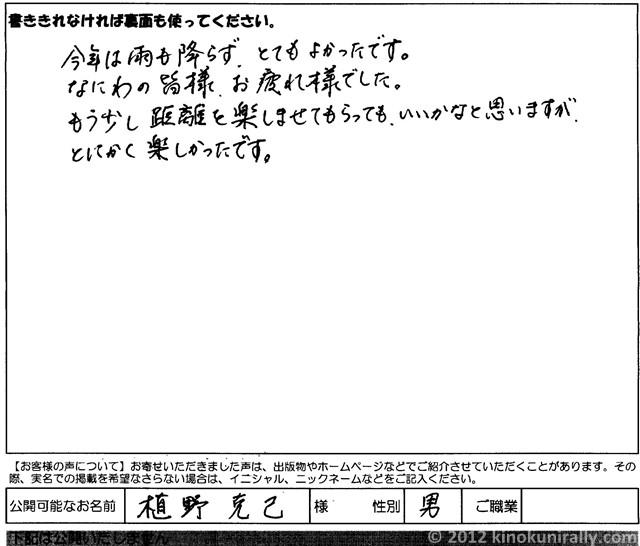 書ききれなければ裏面も使ってください。
今年は雨も降らず、とてもよかったです。
なにわの皆様、お疲れ様でした。
もう少し距離を楽しませてもらっても、いいかなと思いますが、
とにかく楽しかったです。
【お客様の声について】お寄せいただきました声は、出版物やホームページなどでご紹介させていただくことがあります。その
際、実名での掲載を希望なさらない場合は、イニシャル、ニックネームなどをご記入ください。
公開可能なお名前 植野克己 様 性別 男 ご職業
下記は公開いたしません
© 2012 kinokunirally.com